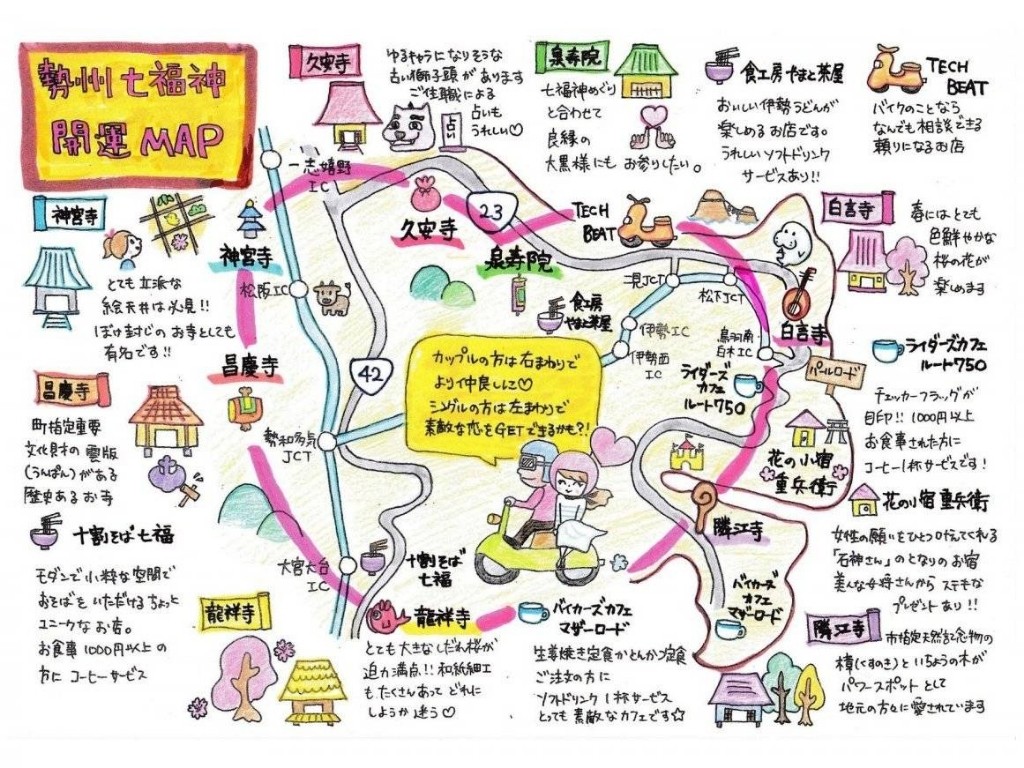 勢州七福神
開運 MAP
久安寺
ゆるキャラになりそうな
古い獅子頭があります
ご住職による
占いも
うれしい♡
占い
泉寿院
七福神めぐり
と合わせて
良縁の
大黒様にも お参りしたい。
食工房 やまと茶屋
おいしい伊勢うどんが
楽しめるお店です。
うれしいソフトドリンク
サービスあり!!
TECH
BEAT
バイクのことなら
なんでも相談できる
頼りになるお店
神宮寺
とても立派な
絵天井は必見!!
ぼけ封じのお寺としても
有名です!!
白言寺
春にはとても
色鮮やかな
桜の花が
楽しめます
一志嬉野
IC
久安寺
23
TECH
BEAT
神宮寺
泉寿院
松阪IC
食工房
やまと茶屋
伊勢IC
伊勢西
IC
松下JCT
鳥羽南・
白木IC
白言寺
パールロード
昌慶寺
42
勢和多気
JCT
カップルの方は右まわりで
より仲良しに♡
シングルの方は左まわりで
素敵な恋をGETできるかも?!
ライダーズ
カフェ
ルート750
花の小宿
重兵衛
隣江寺
大宮大台
IC
十割そば
七福
龍祥寺
バイカーズカフェ
マザーロード
バイカーズ
カフェ
マザーロード
昌慶寺
町指定重要
文化財の雲版
(うんぱん)がある
歴史あるお寺
ライダーズカフェ
ルート750
チェッカーフラッグが
目印!! 1000円以上
お食事された方に
コーヒー1杯サービスです!
十割そば 七福
モダンで小粋な空間で
おそばをいただけるちょっと
ユニークなお店。
お食事1000円以上の
方に コーヒーサービス
花の小宿 重兵衛
女性の願いをひとつ叶えてくれる
「石神さん」のとなりのお宿
美人な女将さんから ステキな
プレゼントあり!!
龍祥寺
とても大きなしだれ桜が
迫力満点!! 和紙細工
もたくさんあって どれに
しようか迷う♡
生姜焼き定食かとんかつ定食
ご注文の方に
ソフトドリンク1杯サービス
とっても素敵なカフェです☆
隣江寺
市指定天然記念物の
樟(くすのき)といちょうの木が
パワースポットとして
地元の方々に愛されています